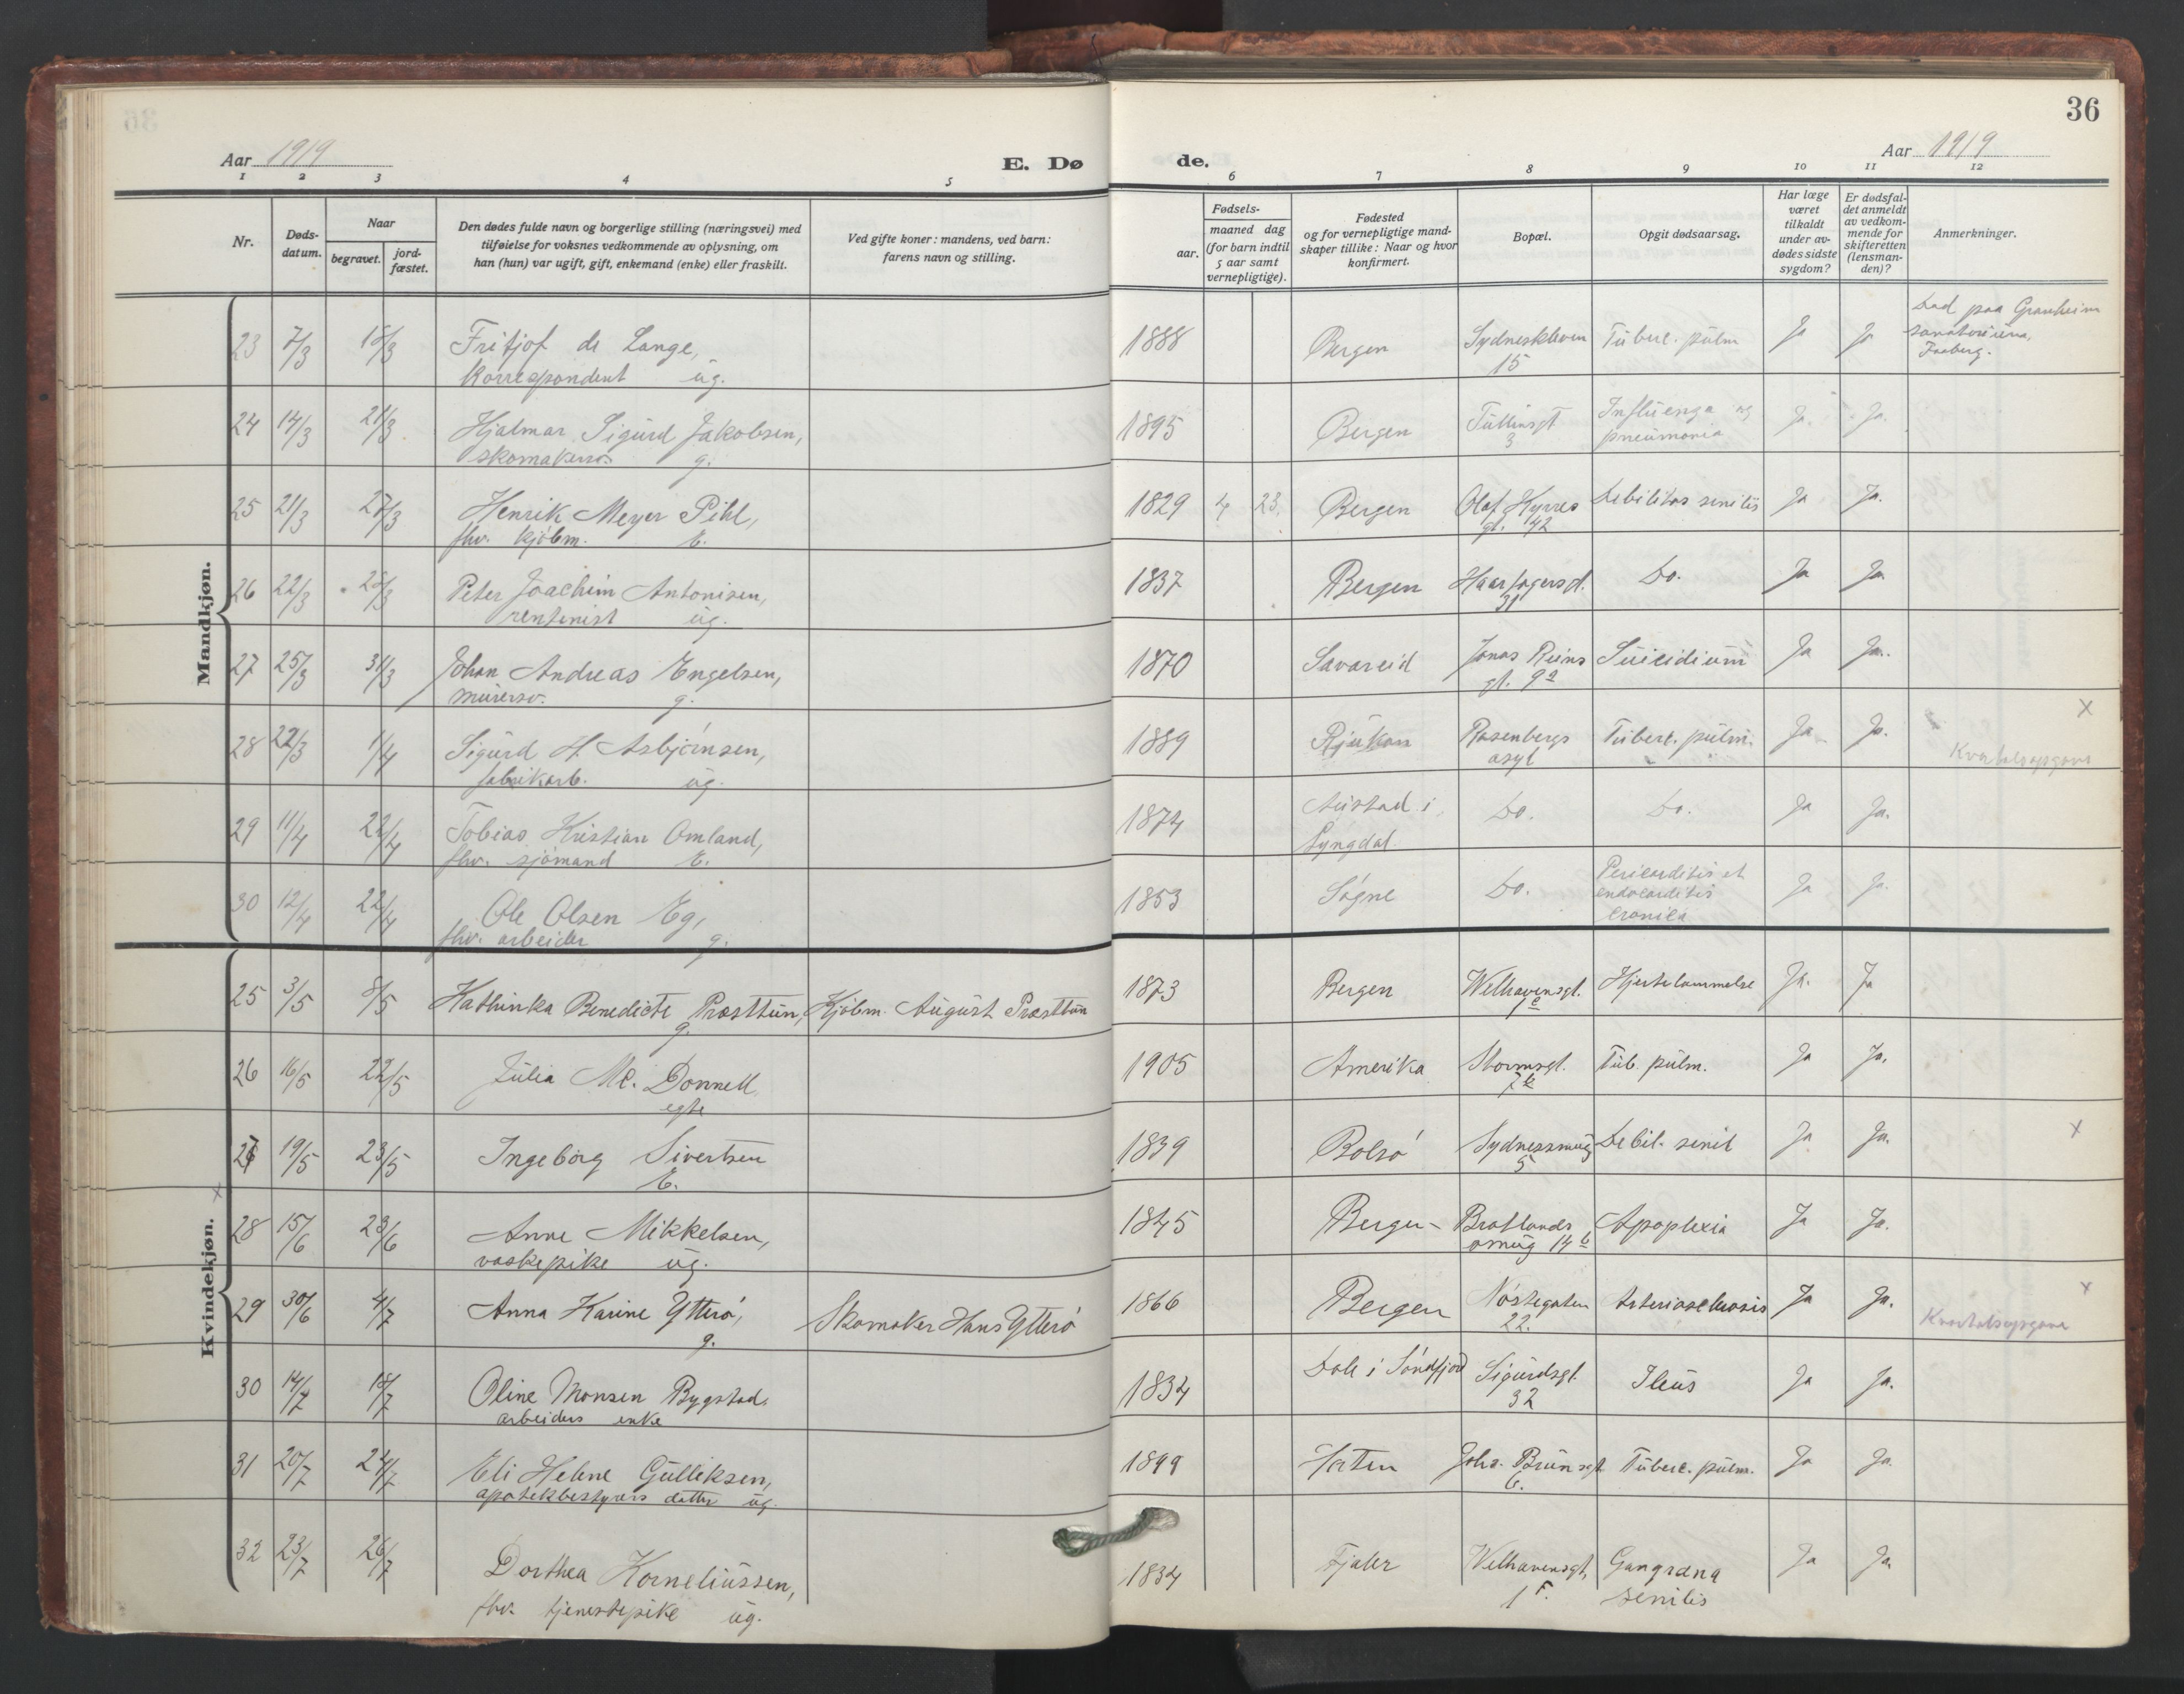 36
Aar 1919
E. Dø
de.
Aar 1919
1 2 3 4 5 6 7 8 9 10 11 12
Nr.
Døds-
datum.
Naar
begravet.
jord-
fæstet.
Den dødes fulde navn og borgerlige stilling (næringsvei) med
tilføielse for voksnes vedkommende av oplysning, om
han (hun) var ugift, gift, enkemand (enke) eller fraskilt.
Ved gifte koner: mandens, ved barn:
farens navn og stilling.
Fødsels-
aar.
maaned dag
(for barn indtil
5 aar samt
vernepligtige).
Fødested
og for vernepligtige mand-
skaper tillike: Naar og hvor
konfirmert.
Bopæl.
Opgit dødsaarsag.
Har læge
været
tilkaldt
under av-
dødes sidste
sygdom?
Er dødsfal-
det anmeldt
av vedkom-
mende for
skifteretten
(lensman-
den)?
Anmerkninger.
Mandkjøn.
23 7/3 18/3 Fritjof de Lange, 1888 Bergen Sydneskleven Tuberc. pulm Ja Ja Død paa Granheim
korrespondent ug. 15 sanatorium,
Faaberg.
24 14/3 21/3 Hjalmar Sigurd Jakobsen, 1895 Bergen Tullinsgt Influenza og Ja. Ja.
skomakersv. g. 3 pneumonia
25 21/3 27/3 Henrik Meyer Pihl, 1829 4 23. Bergen Olaf Kyrres Debilitas senilis Ja Ja.
fhv. kjøbm. E. gt. 42
26 22/3 28/3 Peter Joachim Antonisen, 1837 Bergen Haarfagersgt. Do. Ja Ja.
rentenist ug. 31
27 25/3 31/3 Johan Andreas Engelsen, 1870 Savareid Jonas Reins Suicidium Ja Ja.
murersv. g. gt. 9a
28 22/3 1/4 Sigurd H. Asbjørnsen, 1889 Rjukan Rosenbergs Tuberc. pulm. Ja Ja. x
fabrikarb. ug. asyl Kvartalsopgave
29 11/4 22/4 Tobias Kristian Omland, 1874 i Do. Do. Ja Ja.
fhv. sjømand E. Lyngdal
30 12/4 22/4 Ole Olsen Eg, 1853 Søgne Do. Pericarditis et Ja Ja.
fhv. arbeider g. endocarditis
cronica
Kvindekjøn.
25 3/5 8/5 Kathinka Benedicte Præsttun, Kjøbm. August Præsttun 1873 Bergen Welhavensgt. Hjertelammelse Ja. Ja
g.
26 16/5 22/5 Julia Mc. Donnell, 1905 Amerika Stormsgt. Tub. pulm. Ja Ja.
egte 7b
27 19/5 23/5 Ingeborg Sivertsen 1839 Bolsø Sydnessmug Debil. senil Ja Ja. x
E. 5
x
28 15/6 23/6 Anne Mikkelsen, 1845 Bergen Bratlands Apoplexia Ja Ja.
vaskepike ug. smug 14b
29 30/6 4/7 Anna Karine Ytterø, Skomaker Hans Ytterø 1866 Bergen Nøstegaten Arteriosclerosis Ja Ja. x
g. 22. Kvartalsopgave
30 14/7 18/7 Oline Monsen Bygstad. 1834 Dale i Søndfjord Sigurdsgt. Ileus Ja Ja.
arbeiders enke 32
31 20/7 24/7 Eli Helene Gulliksen, 1899 Horten Johs. Brunsgt Tuberc. pulm. Ja Ja.
apotekbestyrers datter ug. 6.
32 23/7 26/7 Dorthea Korneliussen, 1834 Fjaler Welhavensgt, Gangræna Ja Ja
fhv. tjenestepike ug. 1 F. senilis